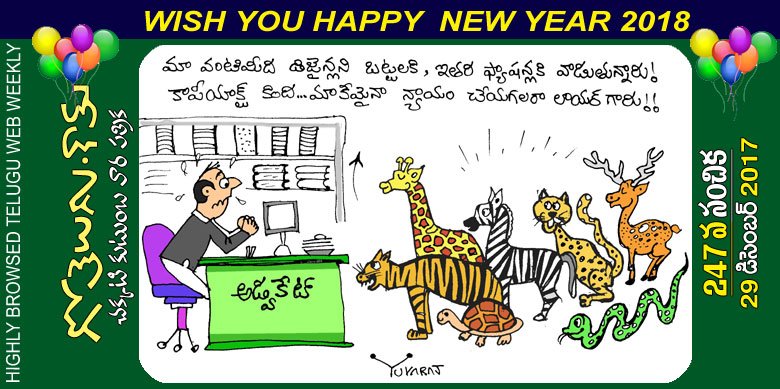 WISH YOU HAPPY NEW YEAR 2018
HIGHLY BROWSED TELUGU WEB WEEKLY
గోతెలుగు.కామ్
చక్కటి కుటుంబ వార పత్రిక
మా వంటిమీది డిజైన్లని బట్టలకి, ఇతర ఫ్యాషన్లకి వాడుతున్నారు!
కాపీయాక్ట్ కింద...మాకేమైనా న్యాయం చేయగలరా లాయర్ గారు!!
అడ్వకేట్
YUVARAJ
247 వ సంచిక
29 డిసెంబర్ 2017